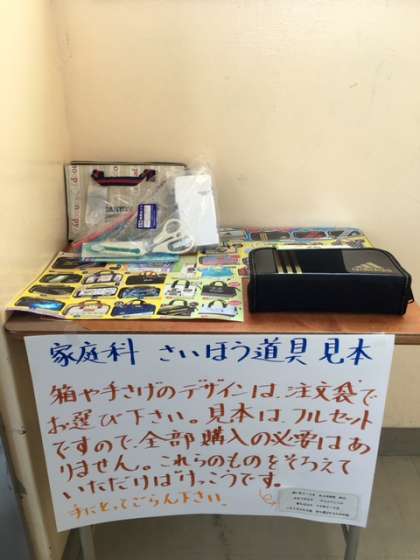 家庭科 さいほう道具見本
箱や手さげのデザインは、注文袋で
お選び下さい。見本は、フルセット
ですので、全部購入の必要はあ
りません。これらのものをそろえて
いただければけっこうです。
手にとってごらん下さい。
adidas